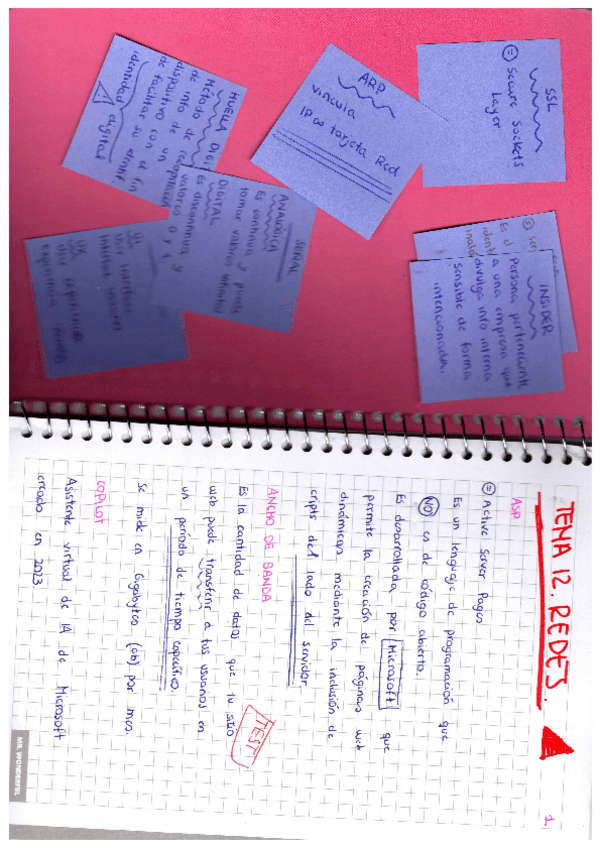 SSL
= Secure Sockets
Layer
ARP
vincula
IP ∞ tarjeta Red
HUELLA DIGI
Método de recopilación
de info de un
dispositivo con el fin
de facilitar su identif.
identidad digital
INSIDER
persona perteneciente
a una empresa que
divulga info interna
sensible de forma
intencionada.
SEÑAL
ANALÓGICA
Es continua y puede
tomar valores infinitos
DIGITAL
Es discontinua y
valores 0 y 1
UI
User Interface
UX
User experience
TEMA 12. REDES.
1
ASP
= Active Server Pages
Es un lenguaje de programación que
NO es de código abierto.
Es desarrollada por Microsoft que
permite la creación de páginas web
dinámicas mediante la inclusión de
scripts del lado del servidor.
ANCHO DE BANDA
TEST
Es la cantidad de datos que tu sitio
web puede transferir a tus usuarios en
un período de tiempo específico.
Se mide en Gigabytes (Gb) por mes.
COPILOT
Asistente virtual de IA de Microsoft
creado en 2023.
MR. WONDERFUL